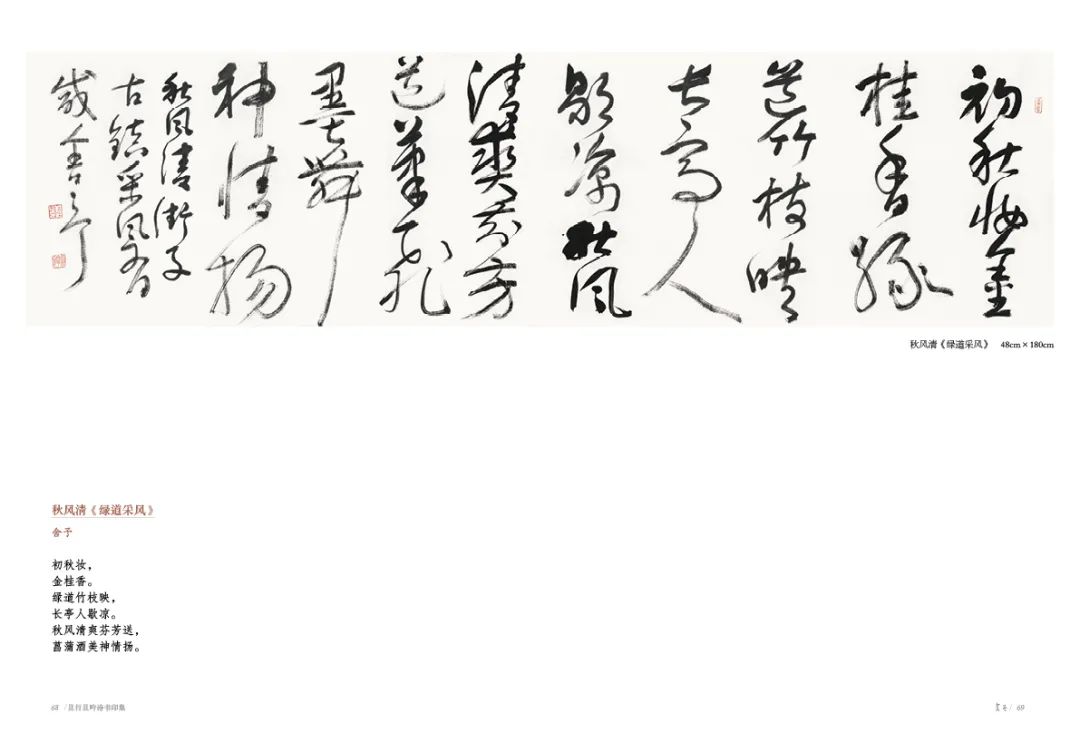 初秋妆金
桂香绿
道竹枝映
长亭人
歇凉秋风
清爽芬芳
送笔飞
墨舞
神情扬
秋风清街子
古镇采风有
感舍予
秋风清《绿道采风》 48cm×180cm
秋风清《绿道采风》
舍予
初秋妆，
金桂香。
绿道竹枝映，
长亭人歇凉。
秋风清爽芬芳送，
菖蒲酒美神情扬。
68 / 且行且吟诗书印集
/ 69